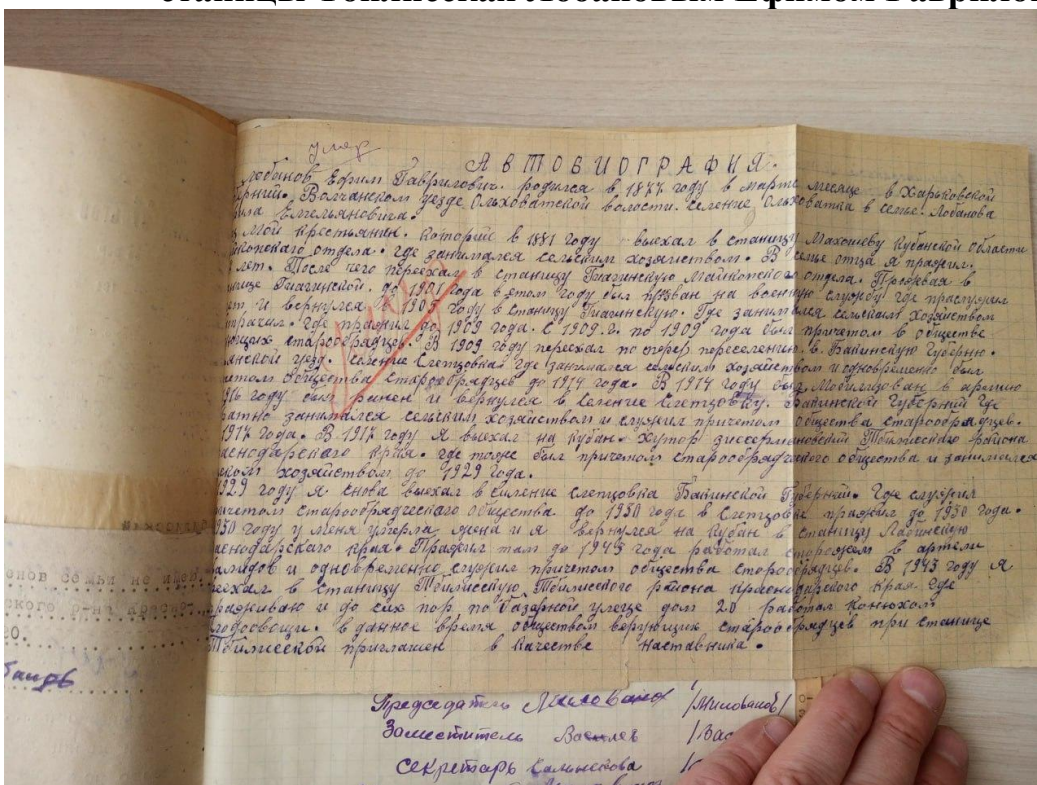 станицы Тбилисская Лобановым Ефимом Гаврилов
Умер
АВТОБИОГРАФИЯ.
Лобанов Ефим Гаврилович. родился в 1877 году в марте месяце в Харьковской
Волчанском уезде Ольховатской волости. селение Ольховатка в семье. Лобанова
Емельяновича.
мой крестьянин. который в 1881 году выехал в станицу Махошеву Кубанской области
отдела. где занимался сельским хозяйством. В семье отца я пражил.
лет. После чего переехал в станицу Гиагинскую Майкопского отдела. Пражвал в
Гиагинской. до 1901 года в этом году был призван на военную службу где праслужил
и вернулся в 1905 году в станицу Гиагинскую. Где занимался сельским хозяйством
где пражил до 1909 года. С 1909 г. по 1909 года был причетом в обществе
старообрядцев. В 1909 году переехал по переселению в. Бакинскую Губерню.
уезд. селение Слепцовка где занимался сельским хозяйством и одновременно был
общества старообрядцев до 1914 года. В 1914 году был мобилизован в армию
году был ранен и вернулся в селение Слепцовку. Бакинской Губерний где
занимался сельским хозяйством и служил причетом общества старообрядцев.
1917 года. В 1917 году я выехал на Кубан. Хутор Тбилисскаю района
края. где тоже был причетом старообрядческого общества и занимался
хозяйством до 1929 года.
1929 году я снова выехал в Силение Слепцовка Бакинской Губерний. Где служил
старообрядческого общества до 1930 года в Слепцовке пражил до 1930 года.
году у меня умерла жена и я вернулся на Кубан в станицу Лабинскую
края. Пражил там до 1943 года работал сторожем в артели
и одновременно служил причетом общества старообрядцев. В 1943 году я
в станицу Тбилисскую Тбилисского района Краснодарского Края. где
и до сих пор по Базарной улеце дом 20 работал Конюхом
в данное время обществом верующих старообрядцев при станице
Тбилисской приглашен в качестве наставника.
семьи не имел.
Председатель Милованов /Милованов/
Заместитель
секретарь